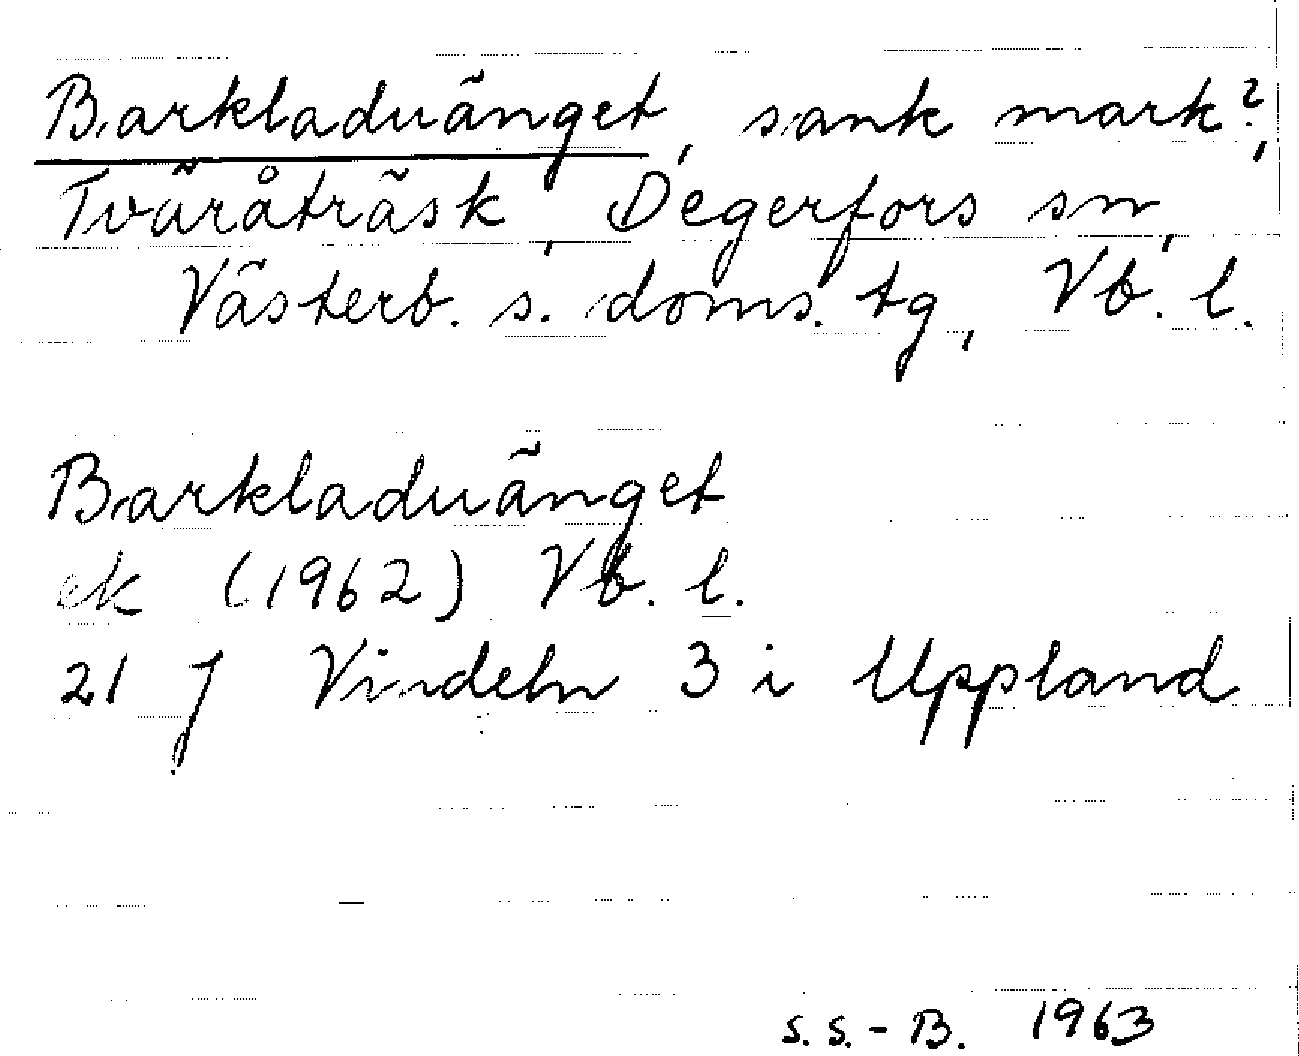 Barkladuänget, sank mark?,
Tväråträsk, Degerfors sn,
Västerb. s. doms. tg, Vb. l.
Barkladuänget
ek (1962) Vb. l.
21 J Vindeln 3 i Uppland
s.s.-B. 1963